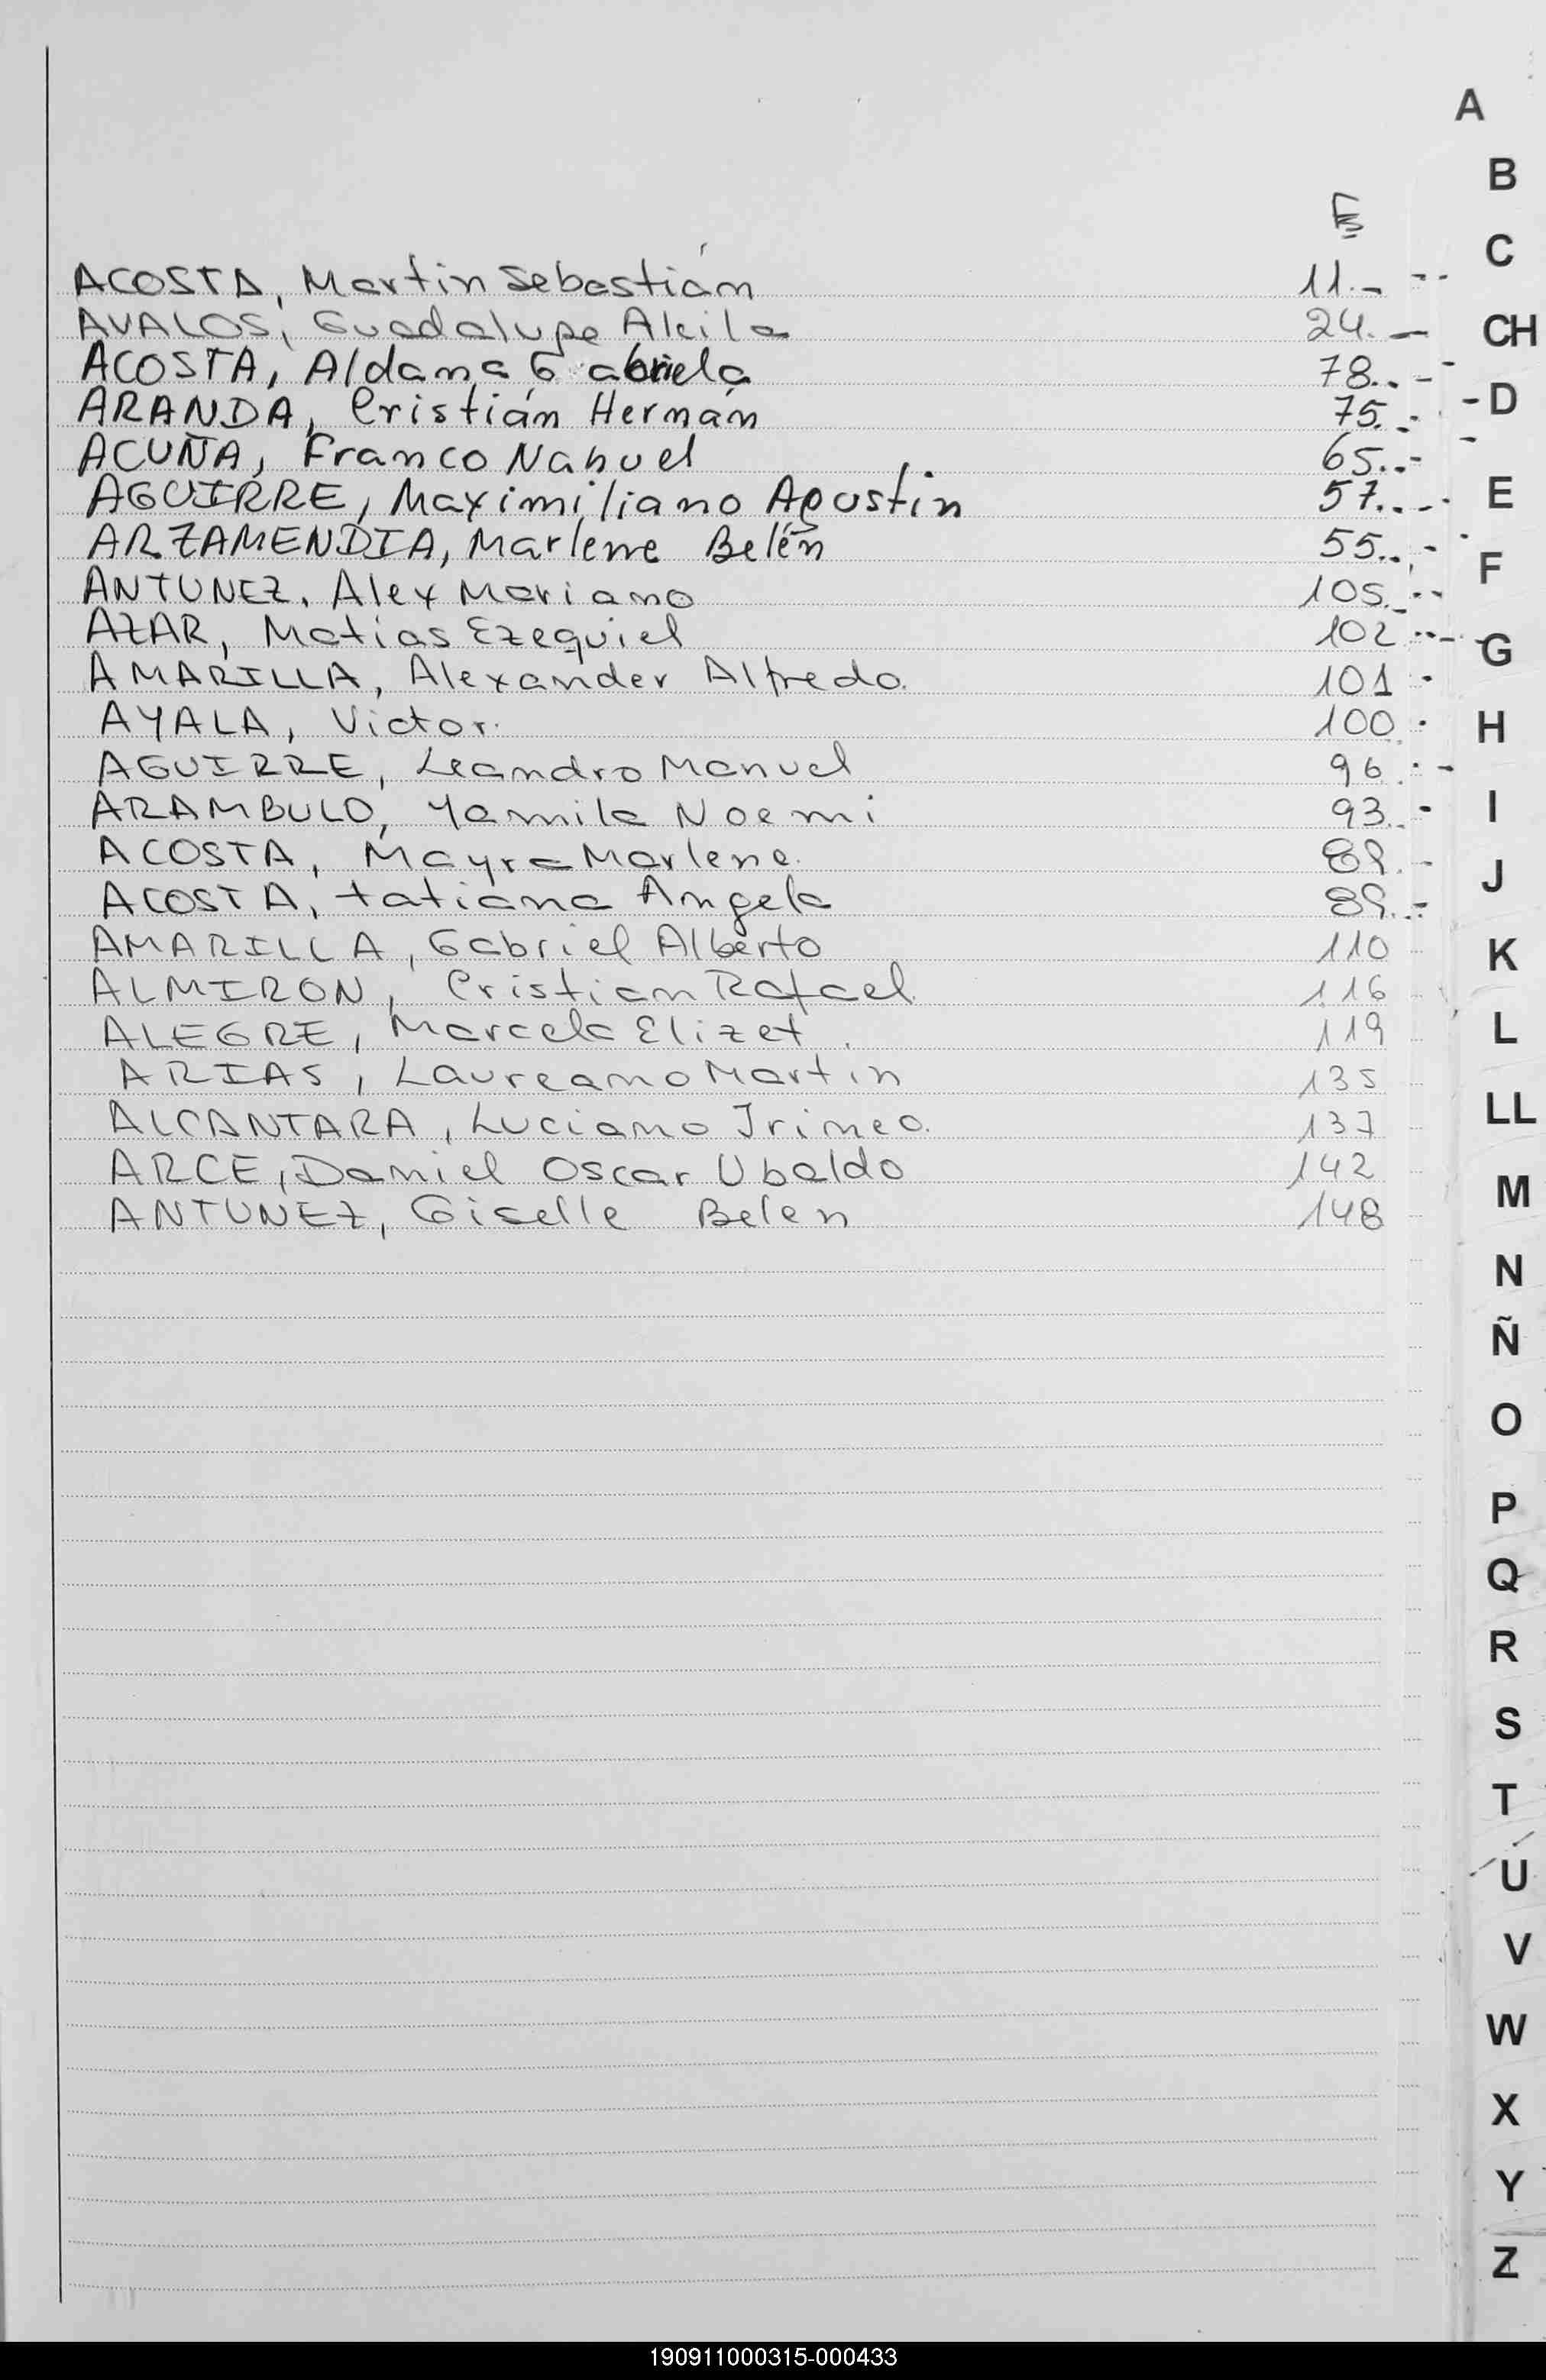 A
B
C
CH
D
E
F
G
H
I
J
K
L
LL
M
N
Ñ
O
P
Q
R
S
T
U
V
W
X
Y
Z
ACOSTA, Martin Sebastián 11.-
AVALOS, Guadalupe 24.-
ACOSTA, Aldana Gabriela 78..-
ARANDA, Cristián Hernán 75..-
ACUÑA, Franco Nahuel 65..-
AGUIRRE, Maximiliano Agustín 57...-
ARZAMENDIA, Marlene Belén 55..-
ANTUNEZ, Alex Mariano 105.-
AZAR, Matias Ezequiel 102
AMARILLA, Alexander Alfredo. 101
AYALA, Victor. 100
AGUIRRE, Leandro Manuel 96
ARAMBULO, Yamila Noemi 93.
ACOSTA, Mayra Marlene. 89.
ACOSTA, tatiana Angela 89.
AMARILLA, Gabriel Alberto 110
ALMIRON, Cristian Rafael 116
ALEGRE, Marcela Elizet. 119
ARIAS, Laureano Martin 135
ALCANTARA, Luciano Irineo. 137
ARCE, Daniel Oscar Ubaldo 142
ANTUNEZ, Giselle Belen 148
190911000315-000433